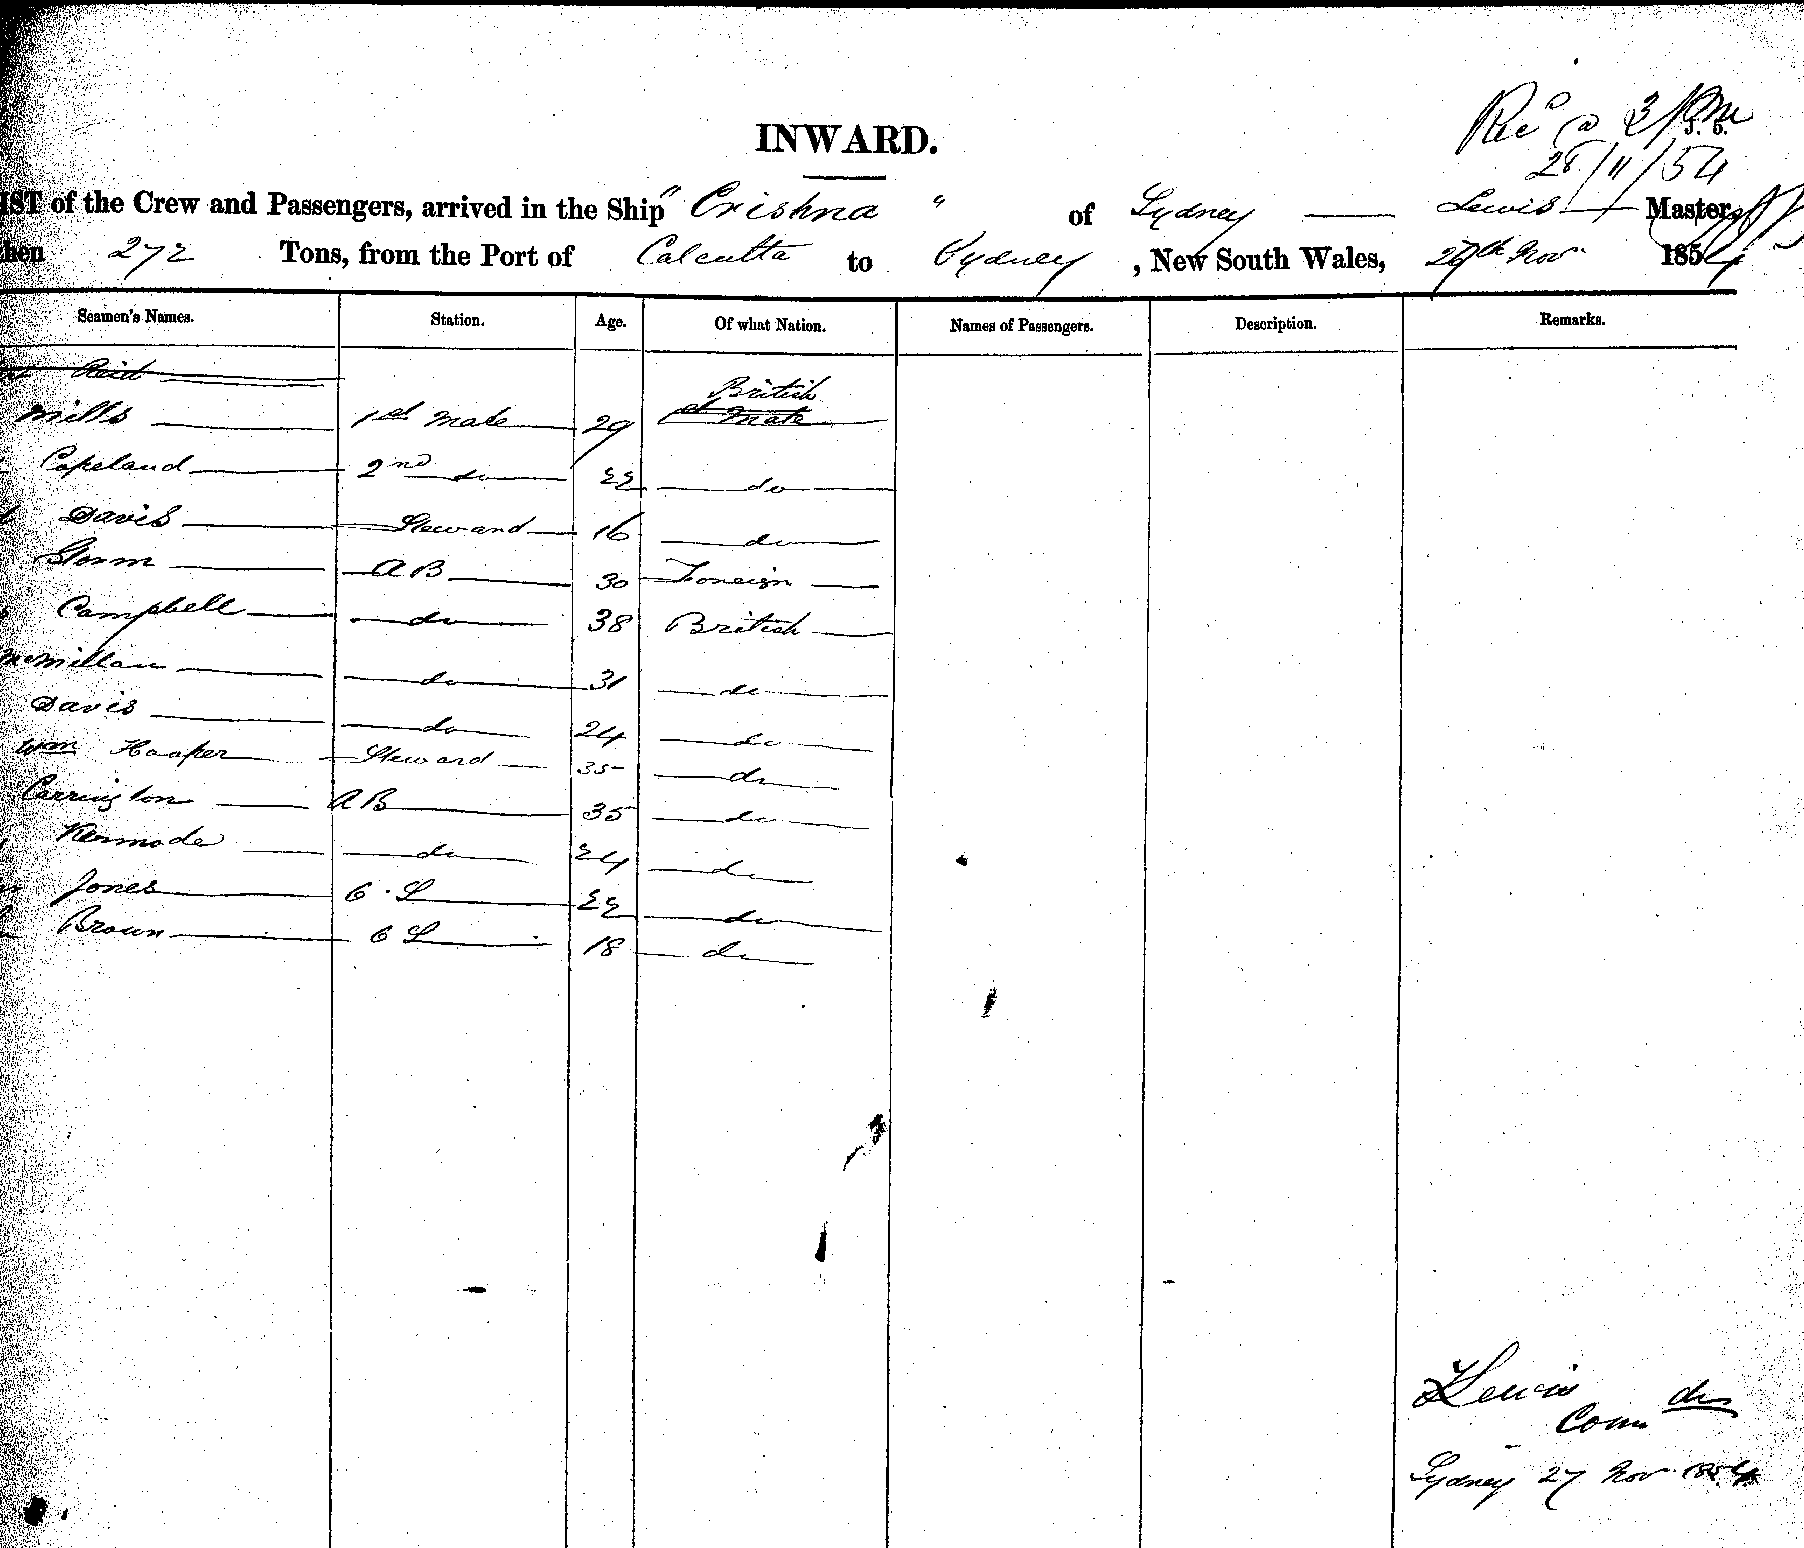 Rec'd @ 3 Pm
28/11/54
INWARD.
IST of the Crew and Passengers, arrived in the Ship "Crishna" of Sydney Lewis Master,
then 272 Tons, from the Port of Calcutta to Sydney, New South Wales, 27th Nov 1854
Seamen's Names. Station. Age. Of what Nation. Names of Passengers. Description. Remarks.
Reid
British
Mills 1st Mate 29 Mate
Copeland 2nd do 22 do
Davis Steward 16 do
Storm AB 30 Foreign
Campbell do 38 British
McMillan do 31 do
Davis do 24 do
Wm Hooper Steward 35 do
Carrington AB 35 do
Kermode do 24 do
Jones O.S 22 do
Brown O S 18 do
Lewis
Com der
Sydney 27 Nov 1854